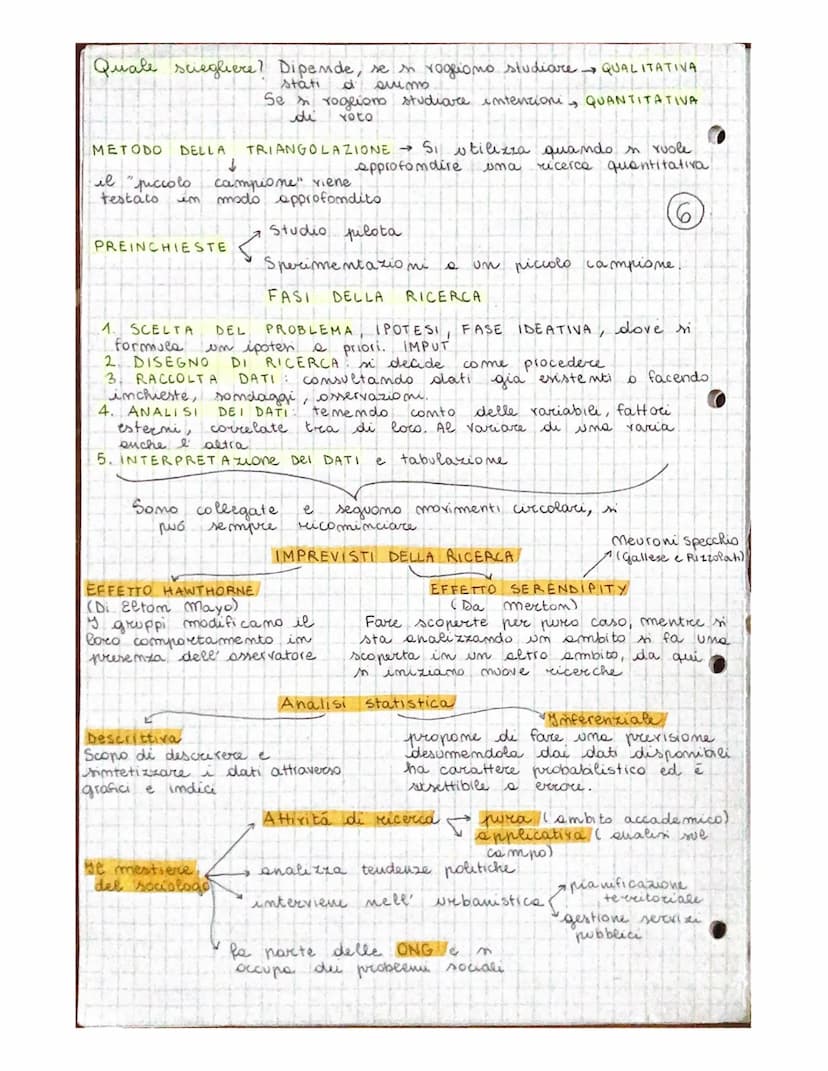 Quale scegliere? Dipende, se si vogliono studiare → QUALITATIVA
stati d'animo
Se si vogliono studiare intenzioni → QUANTITATIVA
di voto
METODO DELLA TRIANGOLAZIONE → Si utilizza quando si vuole
approfondire una ricerca quantitativa
il "piccolo campione" viene
testato in modo approfondito
6
Studio pilota
PREINCHIESTE
Sperimentazioni a un piccolo campione.
FASI DELLA RICERCA
1. SCELTA DEL PROBLEMA, IPOTESI, FASE IDEATIVA, dove si
formula un ipotesi a priori. IMPUT
2. DISEGNO DI RICERCA: si decide come procedere
3. RACCOLTA DATI: consultando dati già esistenti o facendo
inchieste, sondaggi, osservazioni.
4. ANALISI DEI DATI: tenendo conto delle variabili, fattori
esterni, correlate tra di loro. Al variare di una varia
anche l'altra
5. INTERPRETAZIONE DEI DATI e tabulazione
Sono collegate e seguono movimenti circolari, si
può sempre ricominciare
Neuroni specchio
(Gallese e Rizzolati)
IMPREVISTI DELLA RICERCA
EFFETTO HAWTHORNE EFFETTO SERENDIPITY
(Di Elton Mayo) (Da Merton)
I gruppi modificano il Fare scoperte per puro caso, mentre si
loro comportamento in sta analizzando un ambito si fa una
presenza dell'osservatore scoperta in un altro ambito, da qui
si iniziano nuove ricerche
Analisi statistica
Descrittiva Inferenziale
Scopo di descrivere e propone di fare una previsione
sintetizzare i dati attraverso desumendola dai dati disponibili
grafici e indici ha carattere probabilistico ed è
susettibile a errore.
Attività di ricerca → pura (ambito accademico)
applicativa (analisi sul
campo)
Il mestiere
del sociologo
analizza tendenze politiche
interviene nell'urbanistica
pianificazione
territoriale
gestione servizi
pubblici
fa parte delle ONG e si
occupa dei problemi sociali